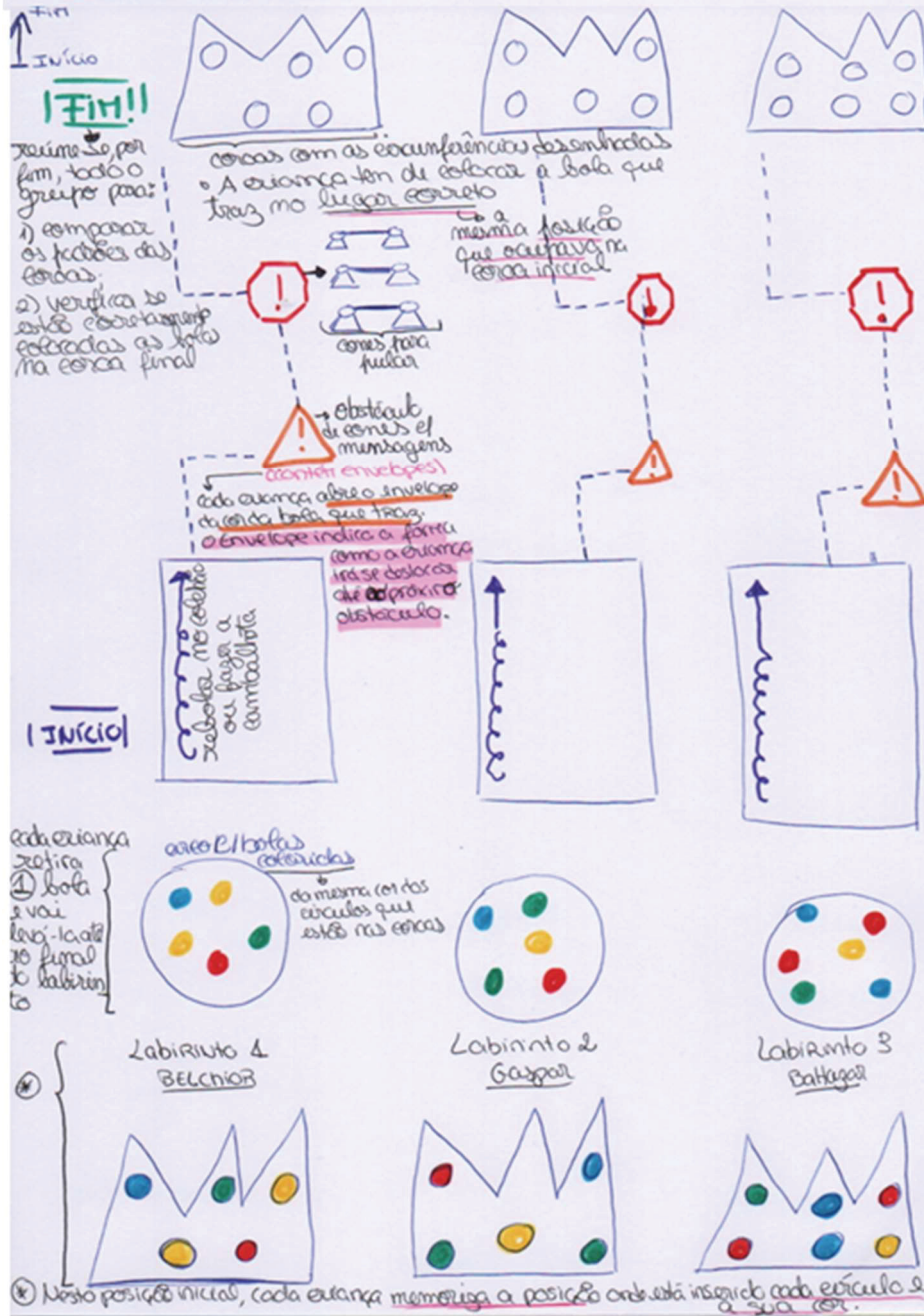 Fim
Início
|FIM!!
reúne-se por
fim, todo o
grupo para:
1) comparar
os padrões das
coroas.
2) verifica se
estão corretamente
colocadas as bolas
na coroa final
coroas com as circunferências desenhadas
• A criança tem de colocar a bola que
traz no lugar correto
a
mesma posição
que ocupava na
coroa inicial
cones para
pular
obstáculo
de cones c/
mensagens
(contém envelopes)
cada criança abre o envelope
da cor da bola que traz.
o Envelope indica a forma
como a criança
irá se deslocar
até ao próximo
obstáculo.
rebolar no colchão
ou faz a
cambalhota
|INÍCIO|
cada criança
retira
1 bola
e vai
levá-la até
ao final
do labirin
to
arco c/ bolas
coloridas
da mesma cor dos
círculos que
estão nas coroas
Labirinto 1
BELCHIOR
Labirinto 2
Gaspar
Labirinto 3
Baltazar
* Nesta posição inicial, cada criança memoriza a posição onde está inserido cada círculo e
a sua cor.